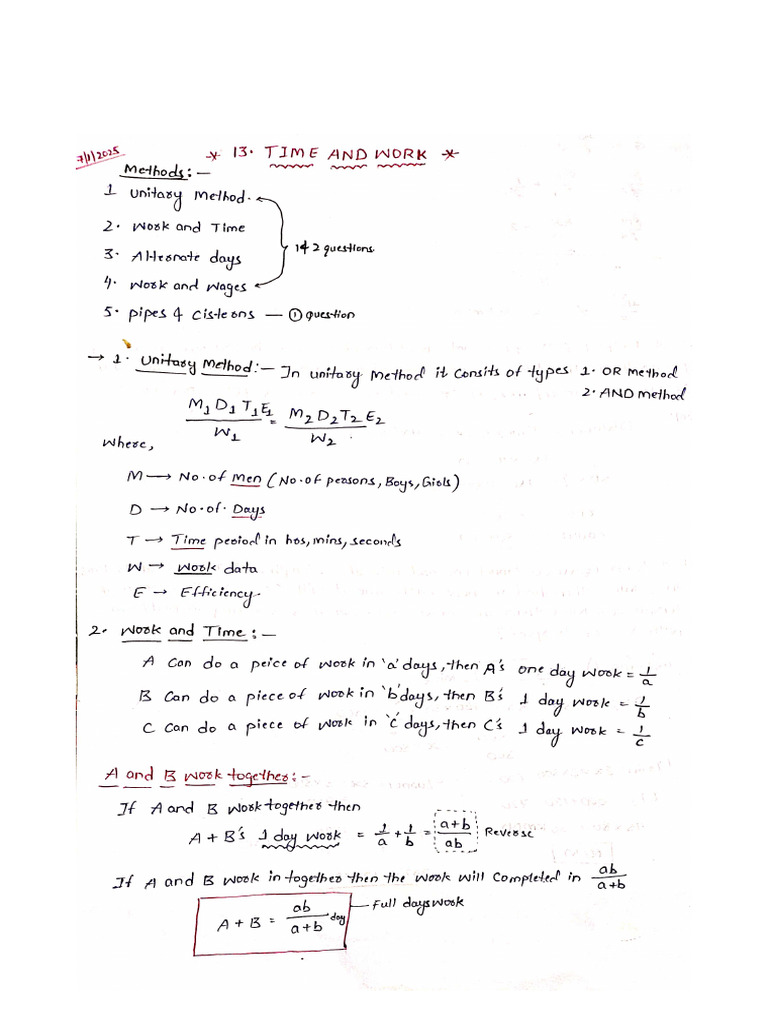 7/1/2025
* 13. TIME AND WORK *
Methods:-
1 Unitary Method.
2. Work and Time
3. Alternate days
4. Work and Wages
1 & 2 questions
5. Pipes & Cisterns — ① question
→ 1. Unitary Method:- In unitary method it consits of types 1. OR method
2. AND method
M₁D₁T₁E₁/W₁ = M₂D₂T₂E₂/W₂
Where,
M → No. of Men (No. of persons, Boys, Girls)
D → No. of. Days
T → Time period in hrs, mins, seconds
W → Work data
E → Efficiency.
2. Work and Time:-
A Can do a peice of work in 'a' days, then A's one day work = 1/a
B Can do a piece of work in 'b' days, then B's 1 day work = 1/b
C Can do a piece of work in 'c' days, then C's 1 day work = 1/c
A and B work together:-
If A and B work together then
A + B's 1 day work = 1/a + 1/b = a+b/ab Reverse
If A and B work in together then the work will completed in ab/a+b
A + B = ab/a+b day — Full days work